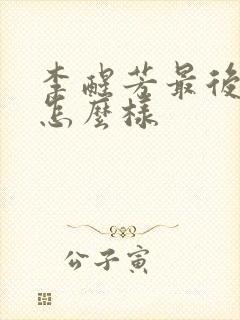 李醒芳最後
怎麼樣
公子寅